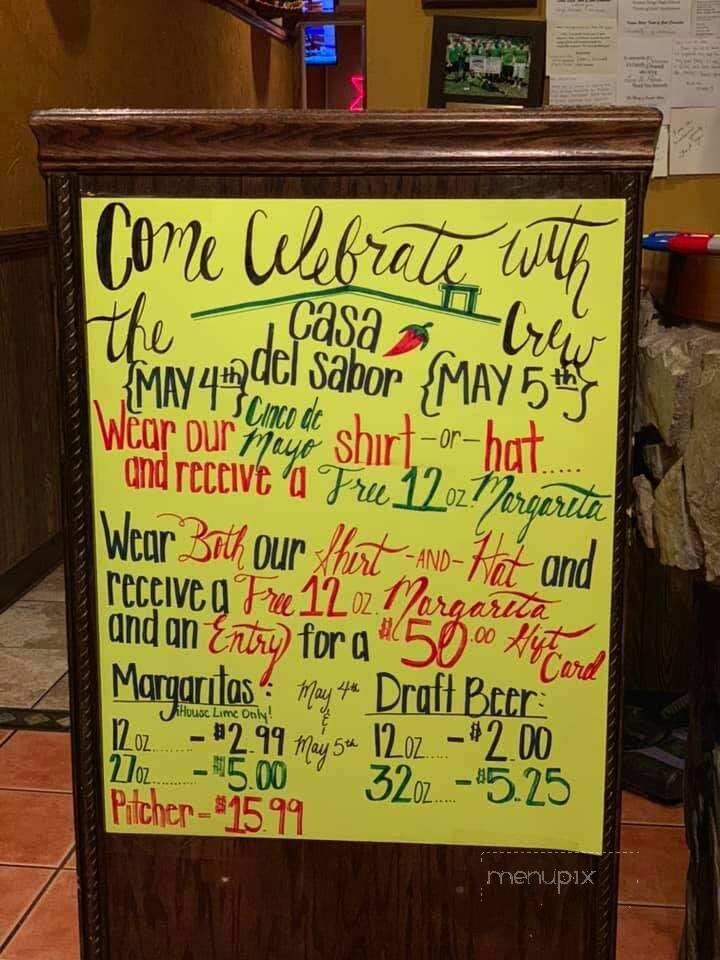 Come Celebrate with
the casa del sabor Crew
{MAY 4th} {MAY 5th}
Wear our Cinco de Mayo shirt -or- hat.....
and receive a Free 12 oz. Margareta
Wear Both our Shirt -AND- Hat and
receive a Free 12 oz. Margareta
and an Entry for a $50.00 Gift Card
Margaritas:
House Lime Only!
12 oz........ - $2.99
27 oz.......... - $5.00
Pitcher - $15.99
May 4th
&
May 5th
Draft Beer:
12 oz..... - $2.00
32 oz..... - $5.25
menupix